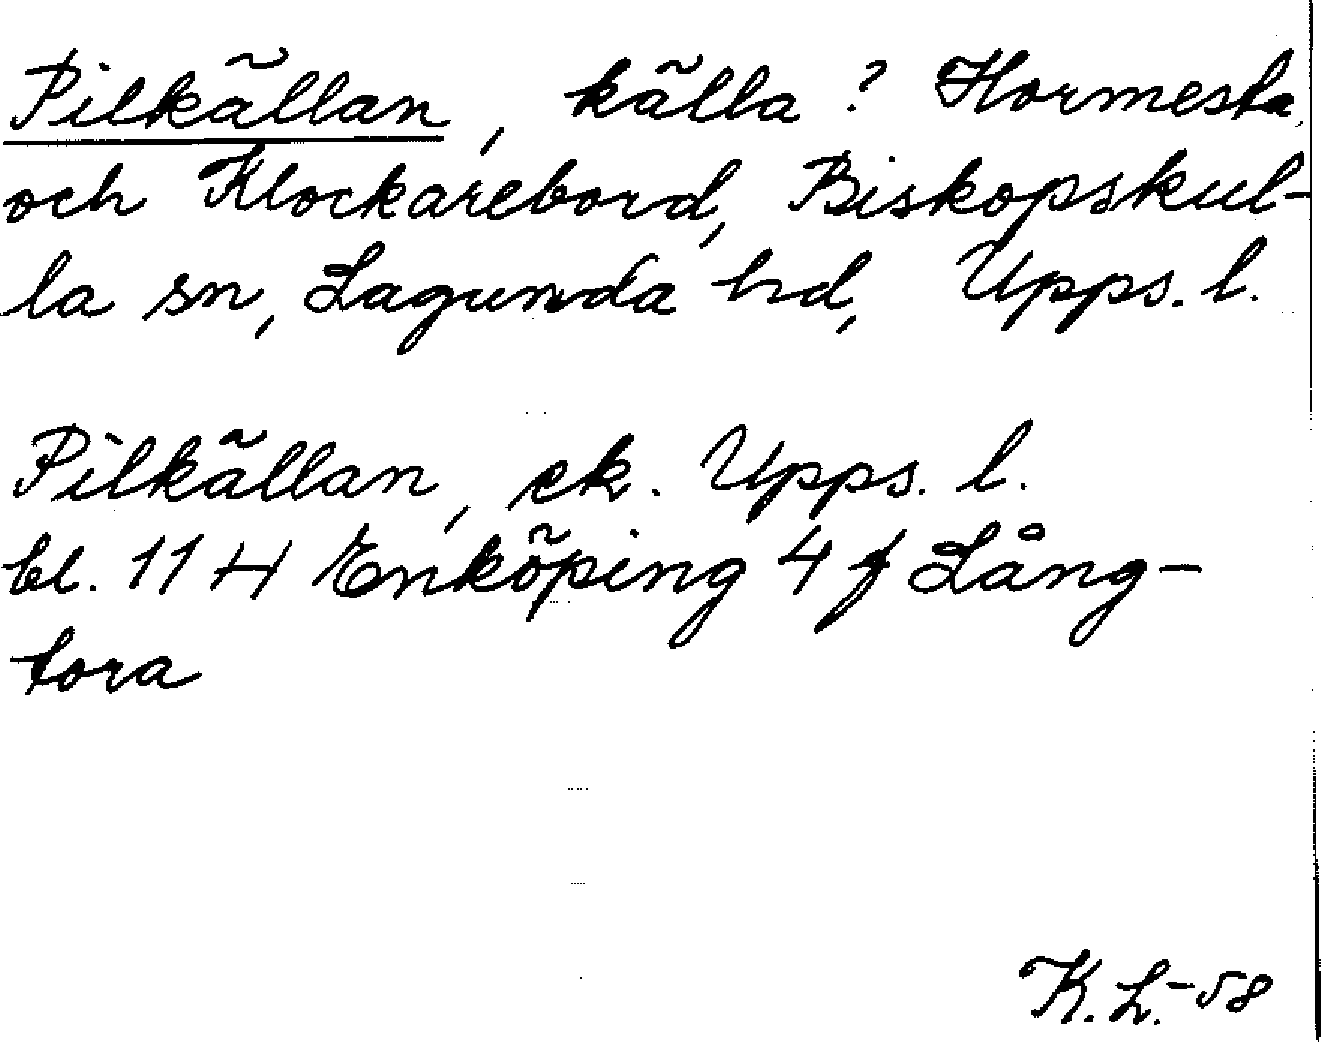 Pilkällan, källa? Hormesta
och Klockarebord, Biskopskul-
la sn, Lagunda hd, Upps. l.
Pilkällan, ek. Upps. l.
bl. 11 H Enköping 4 f Lång-
tora
K. L.-58